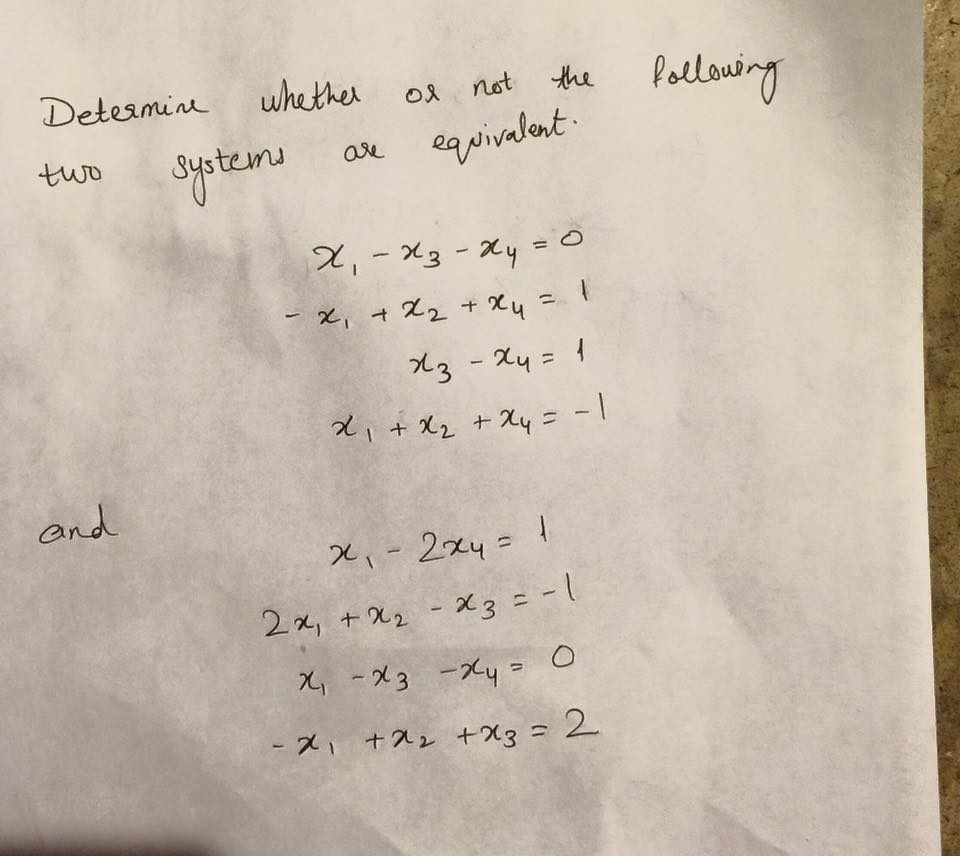 Determine whether or not the following
two systems are equivalent.
x₁ - x₃ - x₄ = 0
- x₁ + x₂ + x₄ = 1
x₃ - x₄ = 1
x₁ + x₂ + x₄ = -1
and
x₁ - 2x₄ = 1
2x₁ + x₂ - x₃ = -1
x₁ - x₃ - x₄ = 0
- x₁ + x₂ + x₃ = 2